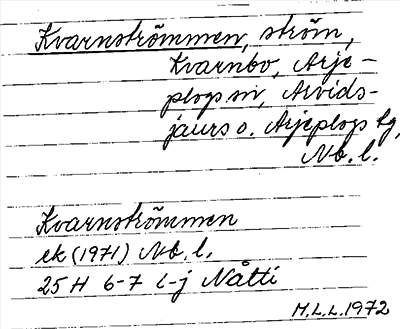 Kvarnströmmen, ström,
Kvarnbo, Arje-
plogs sn, Arvids-
jaurs o. Arjeplogs tg,
Nb. l.
Kvarnströmmen
ek (1971) Nb. l.
25 H 6-7 i-j Nåtti
M.L.L. 1972